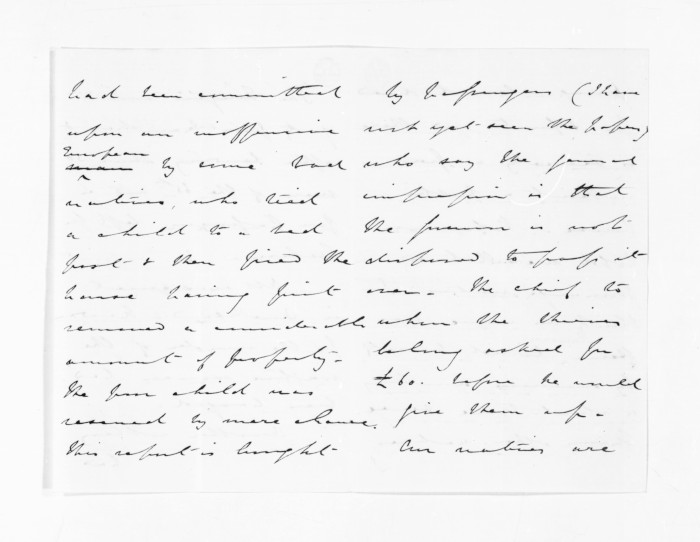 had been committed
upon an inoffensive
European
man by some bad
natives, who tied
a child to a bed
post & then fired the
house having first
removed a considerable
amount of property -
The poor child was
rescued by mere chance.
This report is brought
by passengers (I have
not yet seen the papers)
who say the general
impression is that
the Governor is not
disposed to pass it
over - The chief to
whom the thieves
belong asked for
£60. before he would
give them up -
Our natives are